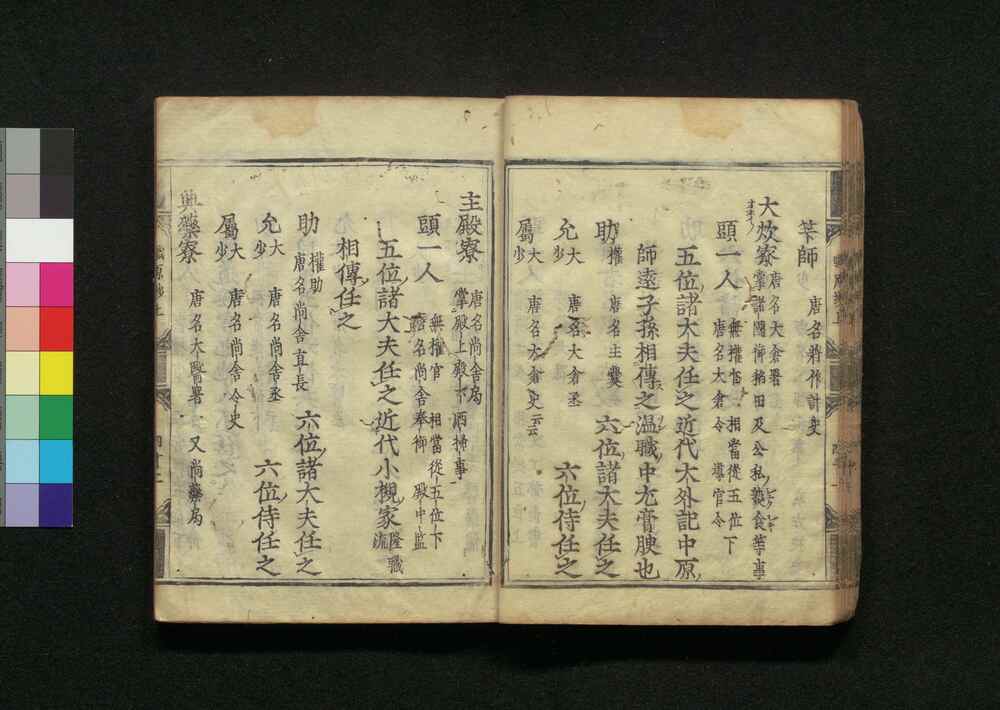 筭師 唐名將作計吏
大炊寮 唐名大倉署
掌諸國御稻田及公私熟食等事
頭一人 無權官 相當從五位下
唐名大倉令 導官令
五位諸大夫任之近代大外記中原
師遠子孫相傳之温職中尤膏腴也
助 權 唐名主爨 六位諸大夫任之
允 大少 唐名大倉丞 六位侍任之
屬 大少 唐名大倉史云云
主殿寮 唐名尚舎局
掌殿上殿下洒掃事
頭一人 無權官 相當從五位下
唐名尚舎奉御 殿中監
五位諸大夫任之近代小槻家 隆職流
相傳任之
助 權助 唐名尚舎直長 六位諸大夫任之
允 大少 唐名尚舎丞 六位侍任之
屬 大少 唐名尚舎令史
典藥寮 唐名大醫署 又尚藥局